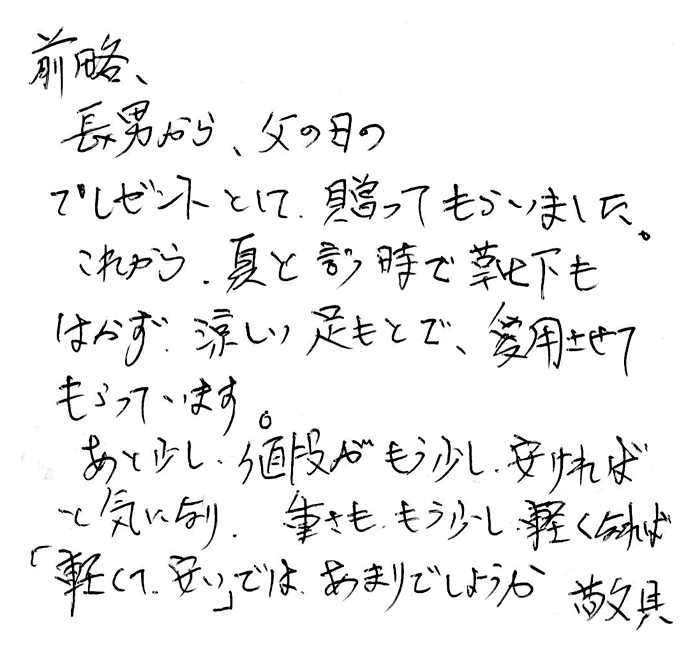 前略、
長男から、父の日の
プレゼントとして、贈ってもらいました。
これから、夏と言う時で靴下も
はかず、涼しい足もとで、愛用させて
もらっています。
あと少し、値段がもう少し、安ければ
と気になり、重さも、もう少し、軽くなれば
「軽くて、安い」では、あまりでしょうか 敬具